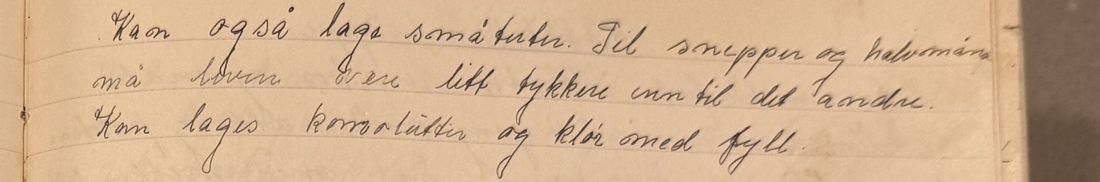 Kan også lage småterter. Til snepper og halvmåne
må leven være litt tykkere enn til det andre.
Kan lages konvolutter og klør med fyll.